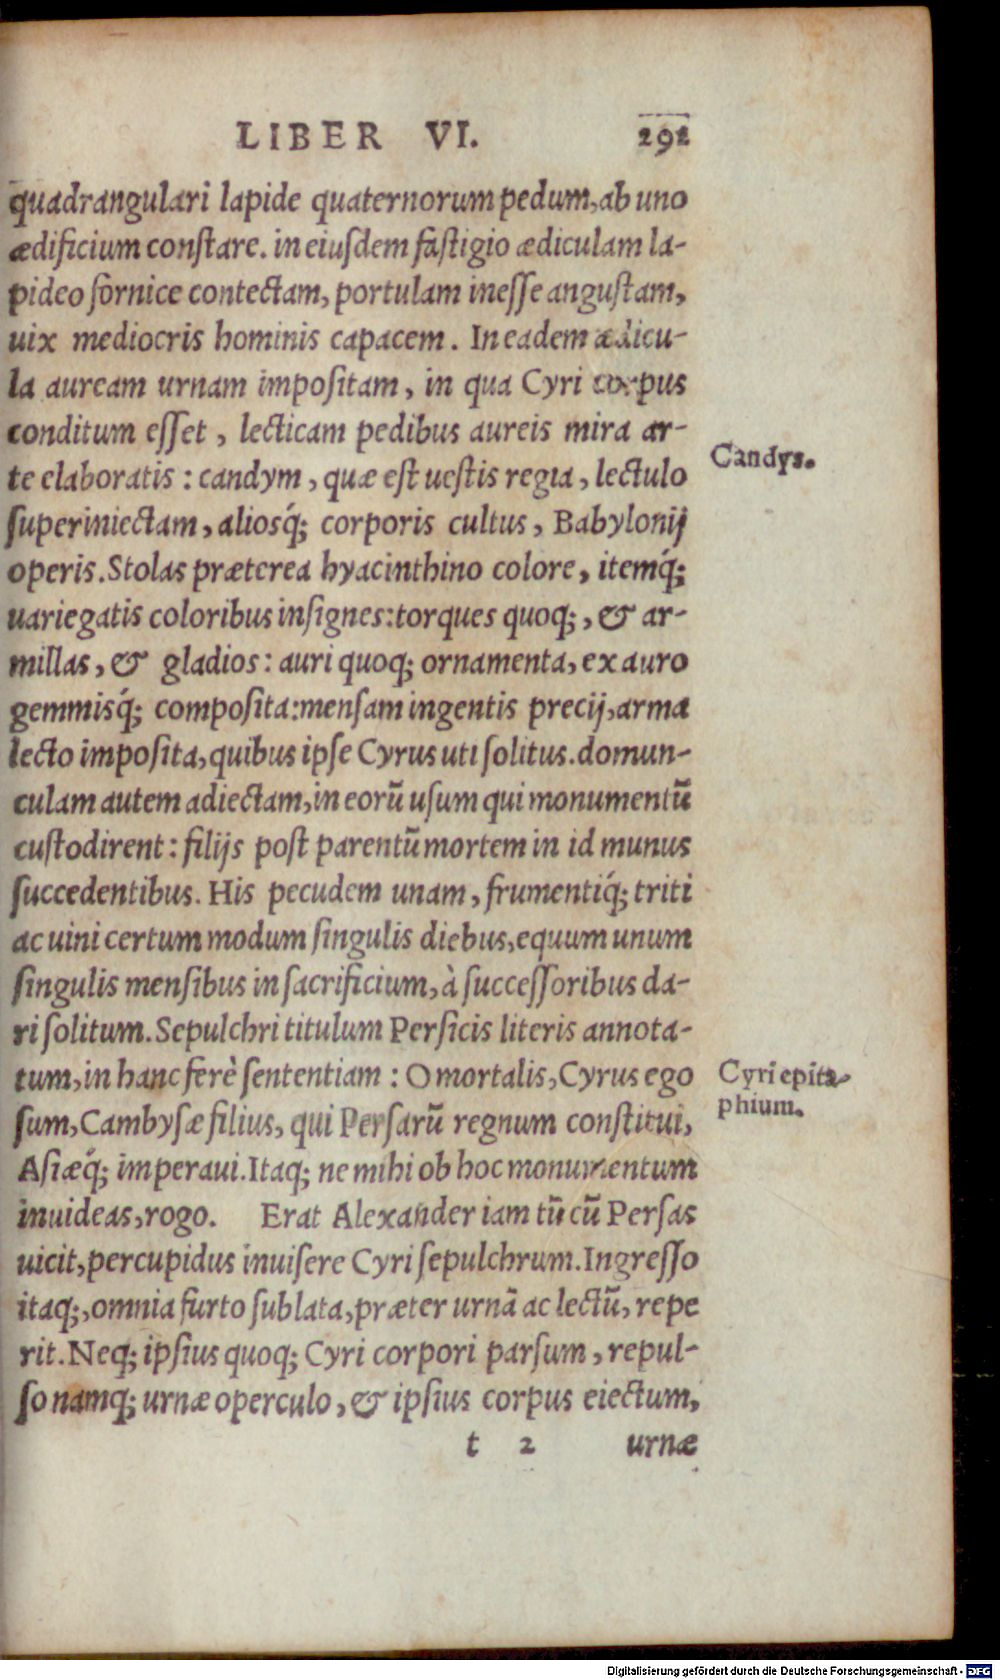 LIBER VI. 291
quadrangulari lapide quaternorum pedum, ab uno
ædificium conſtare. in eiuſdem faſtigio ædiculam la-
pideo fornice contectam, portulam ineſſe anguſtam,
uix mediocris hominis capacem. In eadem ædicu-
la auream urnam impoſitam, in qua Cyri corpus
conditum eſſet, lecticam pedibus aureis mira ar-
te elaboratis: candym, quæ eſt ueſtis regia, lectulo
Candys.
ſuperiniectam, alioſq́; corporis cultus, Babylonij
operis. Stolas præterea hyacinthino colore, itemq́;
uariegatis coloribus inſignes: torques quoq;, & ar-
millas, & gladios: auri quoq; ornamenta, ex auro
gemmisq́; compoſita: menſam ingentis precij, arma
lecto impoſita, quibus ipſe Cyrus uti ſolitus. domun-
culam autem adiectam, in eorũ uſum qui monumentũ
cuſtodirent: filijs poſt parentũ mortem in id munus
ſuccedentibus. His pecudem unam, frumentiq́; triti
ac uini certum modum ſingulis diebus, equum unum
ſingulis menſibus in ſacrificium, à ſucceſſoribus da-
ri ſolitum. Sepulchri titulum Perſicis literis annota-
tum, in hanc ferè ſententiam: O mortalis, Cyrus ego
Cyri epita-
phium.
ſum, Cambyſæ filius, qui Perſarũ regnum conſtitui,
Aſiæq́; imperaui. Itaq; ne mihi ob hoc monumentum
inuideas, rogo. Erat Alexander iam tũ cũ Perſas
uicit, percupidus inuiſere Cyri ſepulchrum. Ingreſſo
itaq;, omnia furto ſublata, præter urnã ac lectũ, repe
rit. Neq; ipſius quoq; Cyri corpori parſum, repul-
ſo namq; urnæ operculo, & ipſius corpus eiectum,
t 2 urnæ
Digitalisierung gefördert durch die Deutsche Forschungsgemeinschaft - DFG